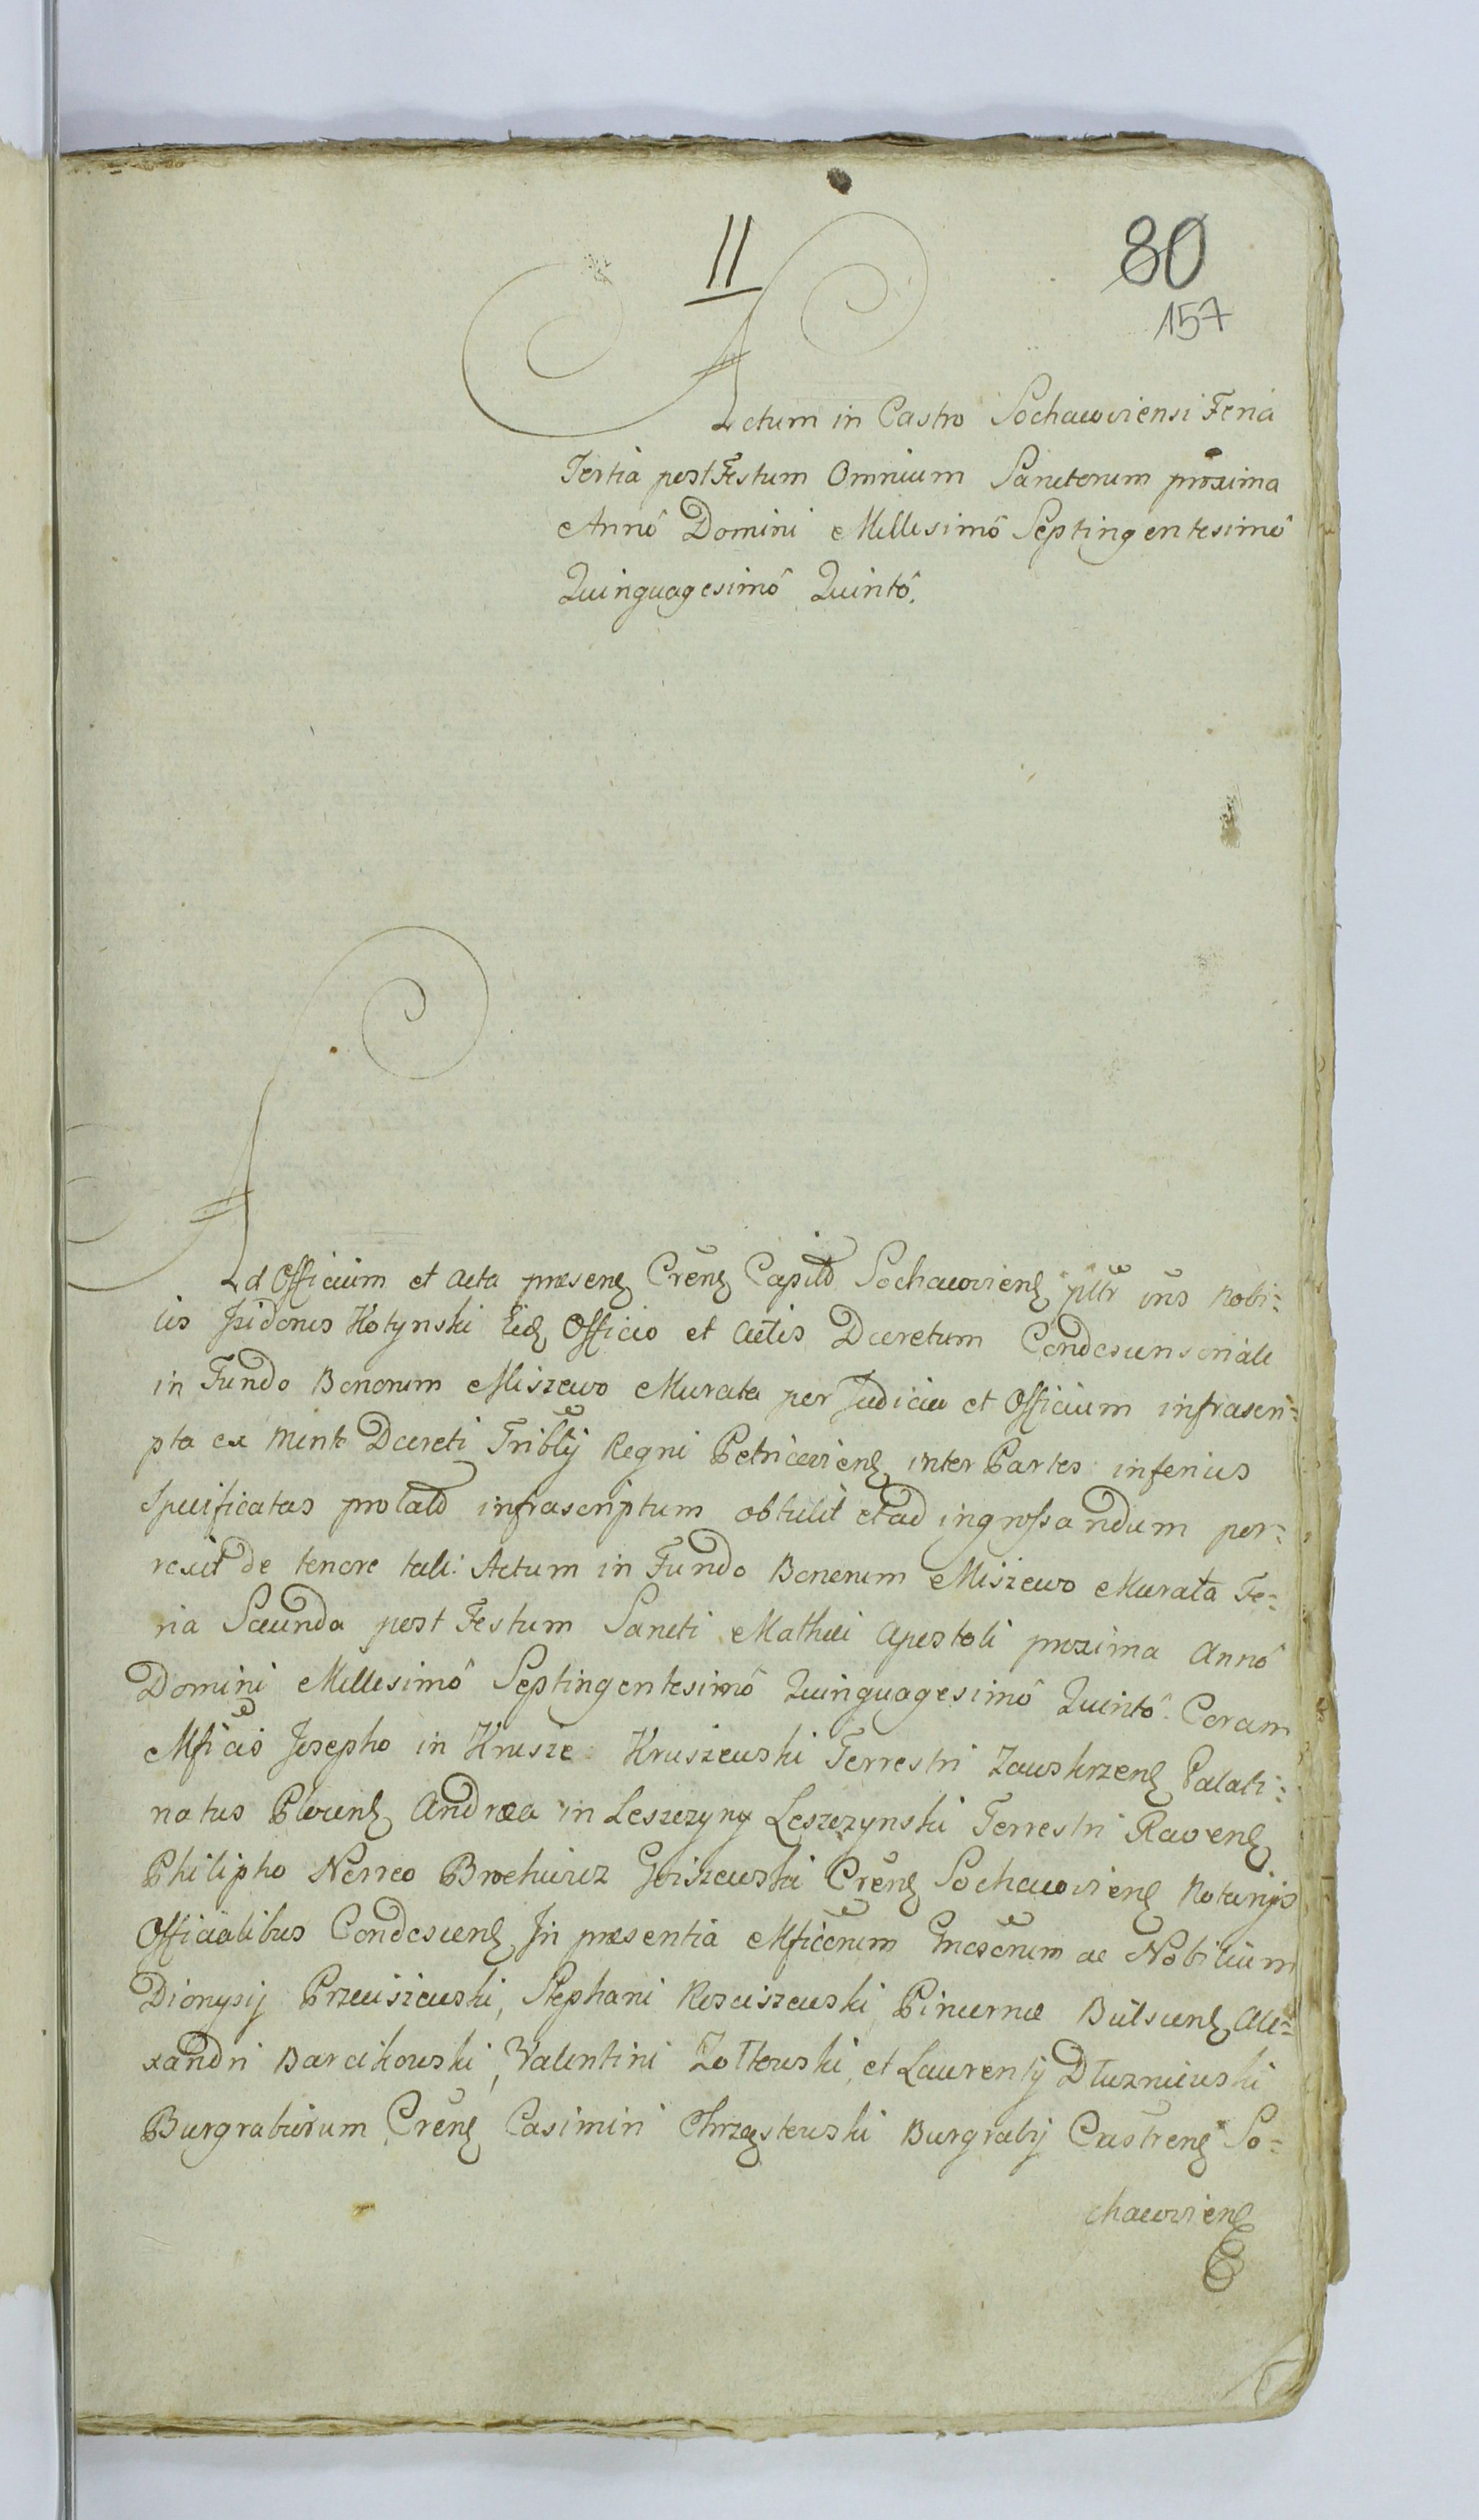 II
80
157
Actum in Castro Sochacoviensi Feria
Tertia post Festum Omnium Sanctorum proxima
Annô Domini Millesimô Septingentesimô
Quinquagesimô Quintô.
Ad Officium et Acta præsen Cren Capital Sochacovien pltr vns Nobi=
lis Isidorus Kotynski Eid Officio et Actis Decretum Condescensoriale
in Fundo Bonorum Miszewo Murata per Judicia et Officium infrascri=
pta ex Mente Decreti Triblij Regni Petricovien inter Partes inferius
Specificatas prolatd infrascriptum obtulit et ad ingrossandum por=
rexit de tenore tali: Actum in Fundo Bonorum Miszewo Murata Fe=
ria Secunda post Festum Sancti Mathæi Apostoli proxima Annô
Domini Millesimô Septingentesimô Quinquagesimô Quintô. Coram
Mficis Josepho in Krusze Kruszewski Terrestri Zawskrzen Palati=
natus Plocen Andræa in Leszczyny Leszczynski Terrestri Raven
Philipho Nerreo Brochwicz Gociszewski Cren Sochacovien Notarijs
Officialibus Condescen In præsentia Mficorum Gnesorum ac Nobilium
Dionysij Przeciszewski, Stephani Rosciszewski Pincernæ Buscen Ale=
xandri Barcikowski, Valentini Zołtowski, et Laurentij Dłuzniewski
Burgrabiorum Cren Casimiri Chrząstowski Burgrabij Castren So=
chacovien